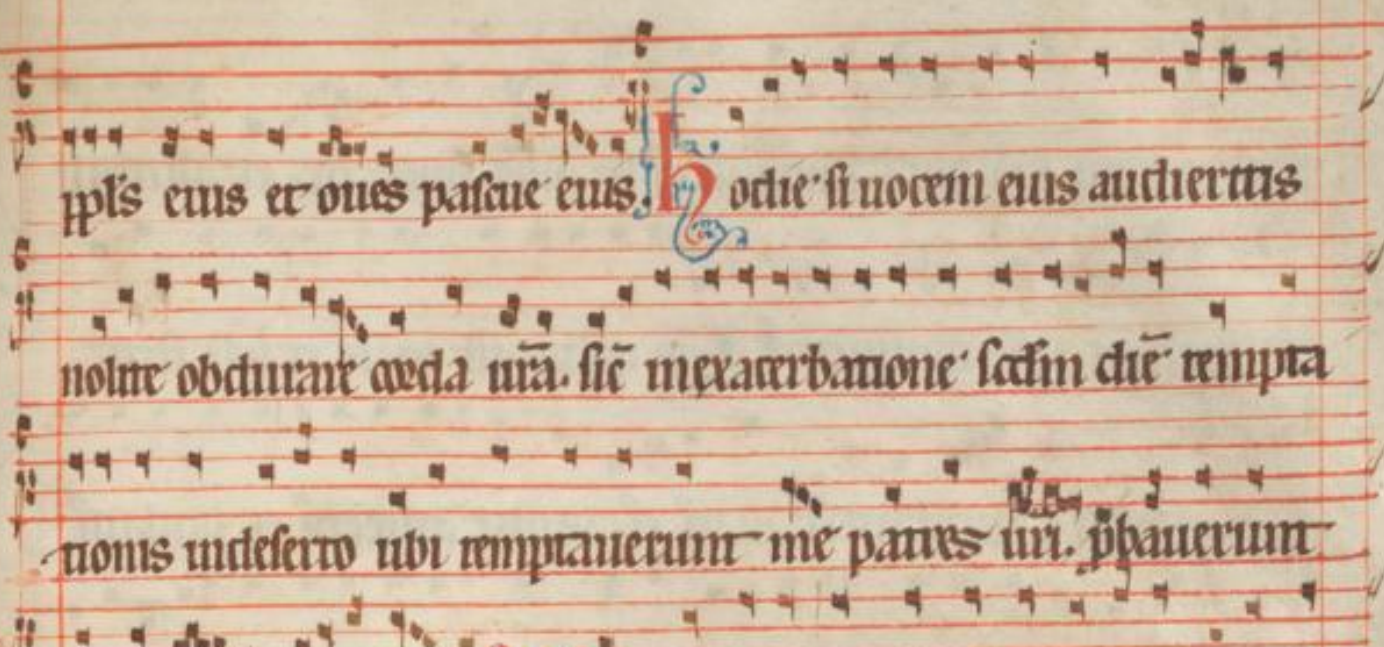 ppl̄s eius et oues pascue eius. hodie si uocem eius audieritis
nolite obdurare corda ur̄a. sic̄ inexacerbatione scd̄m diē tempta
tionis indeserto ubi temptauerunt me patres ur̄i. p̄bauerunt